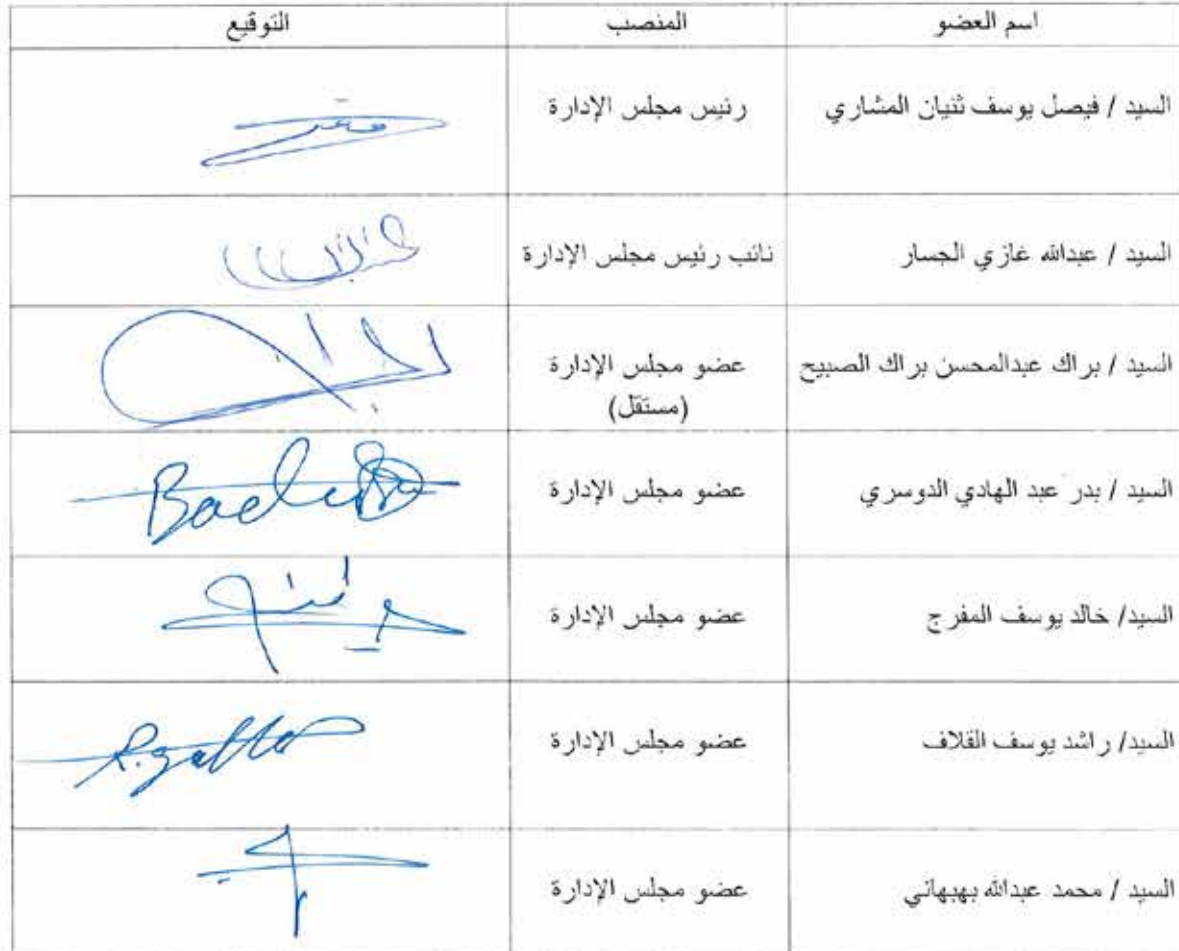 اسم العضو المنصب التوقيع
السيد / فيصل يوسف ثنيان المشاري رئيس مجلس الإدارة
السيد / عبدالله غازي الجسار نائب رئيس مجلس الإدارة
السيد / براك عبدالمحسن براك الصبيح عضو مجلس الإدارة
(مستقل)
السيد / بدر عبد الهادي الدوسري عضو مجلس الإدارة
السيد/ خالد يوسف المفرج عضو مجلس الإدارة
السيد/ راشد يوسف القلاف عضو مجلس الإدارة
السيد / محمد عبدالله بهبهاني عضو مجلس الإدارة